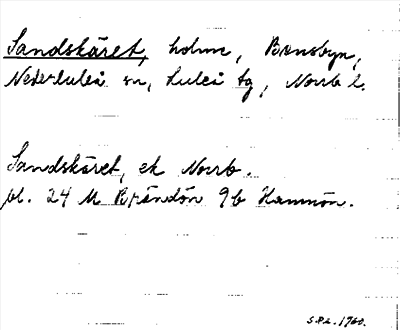 Sandskäret, holme, Brensbyn,
Nederluleå sn, Luleå tg, Norrb l.
Sandskäret, ek Norrb.
bl. 24 M Brändön 9b Hamnön.
S.P.L. 1960.